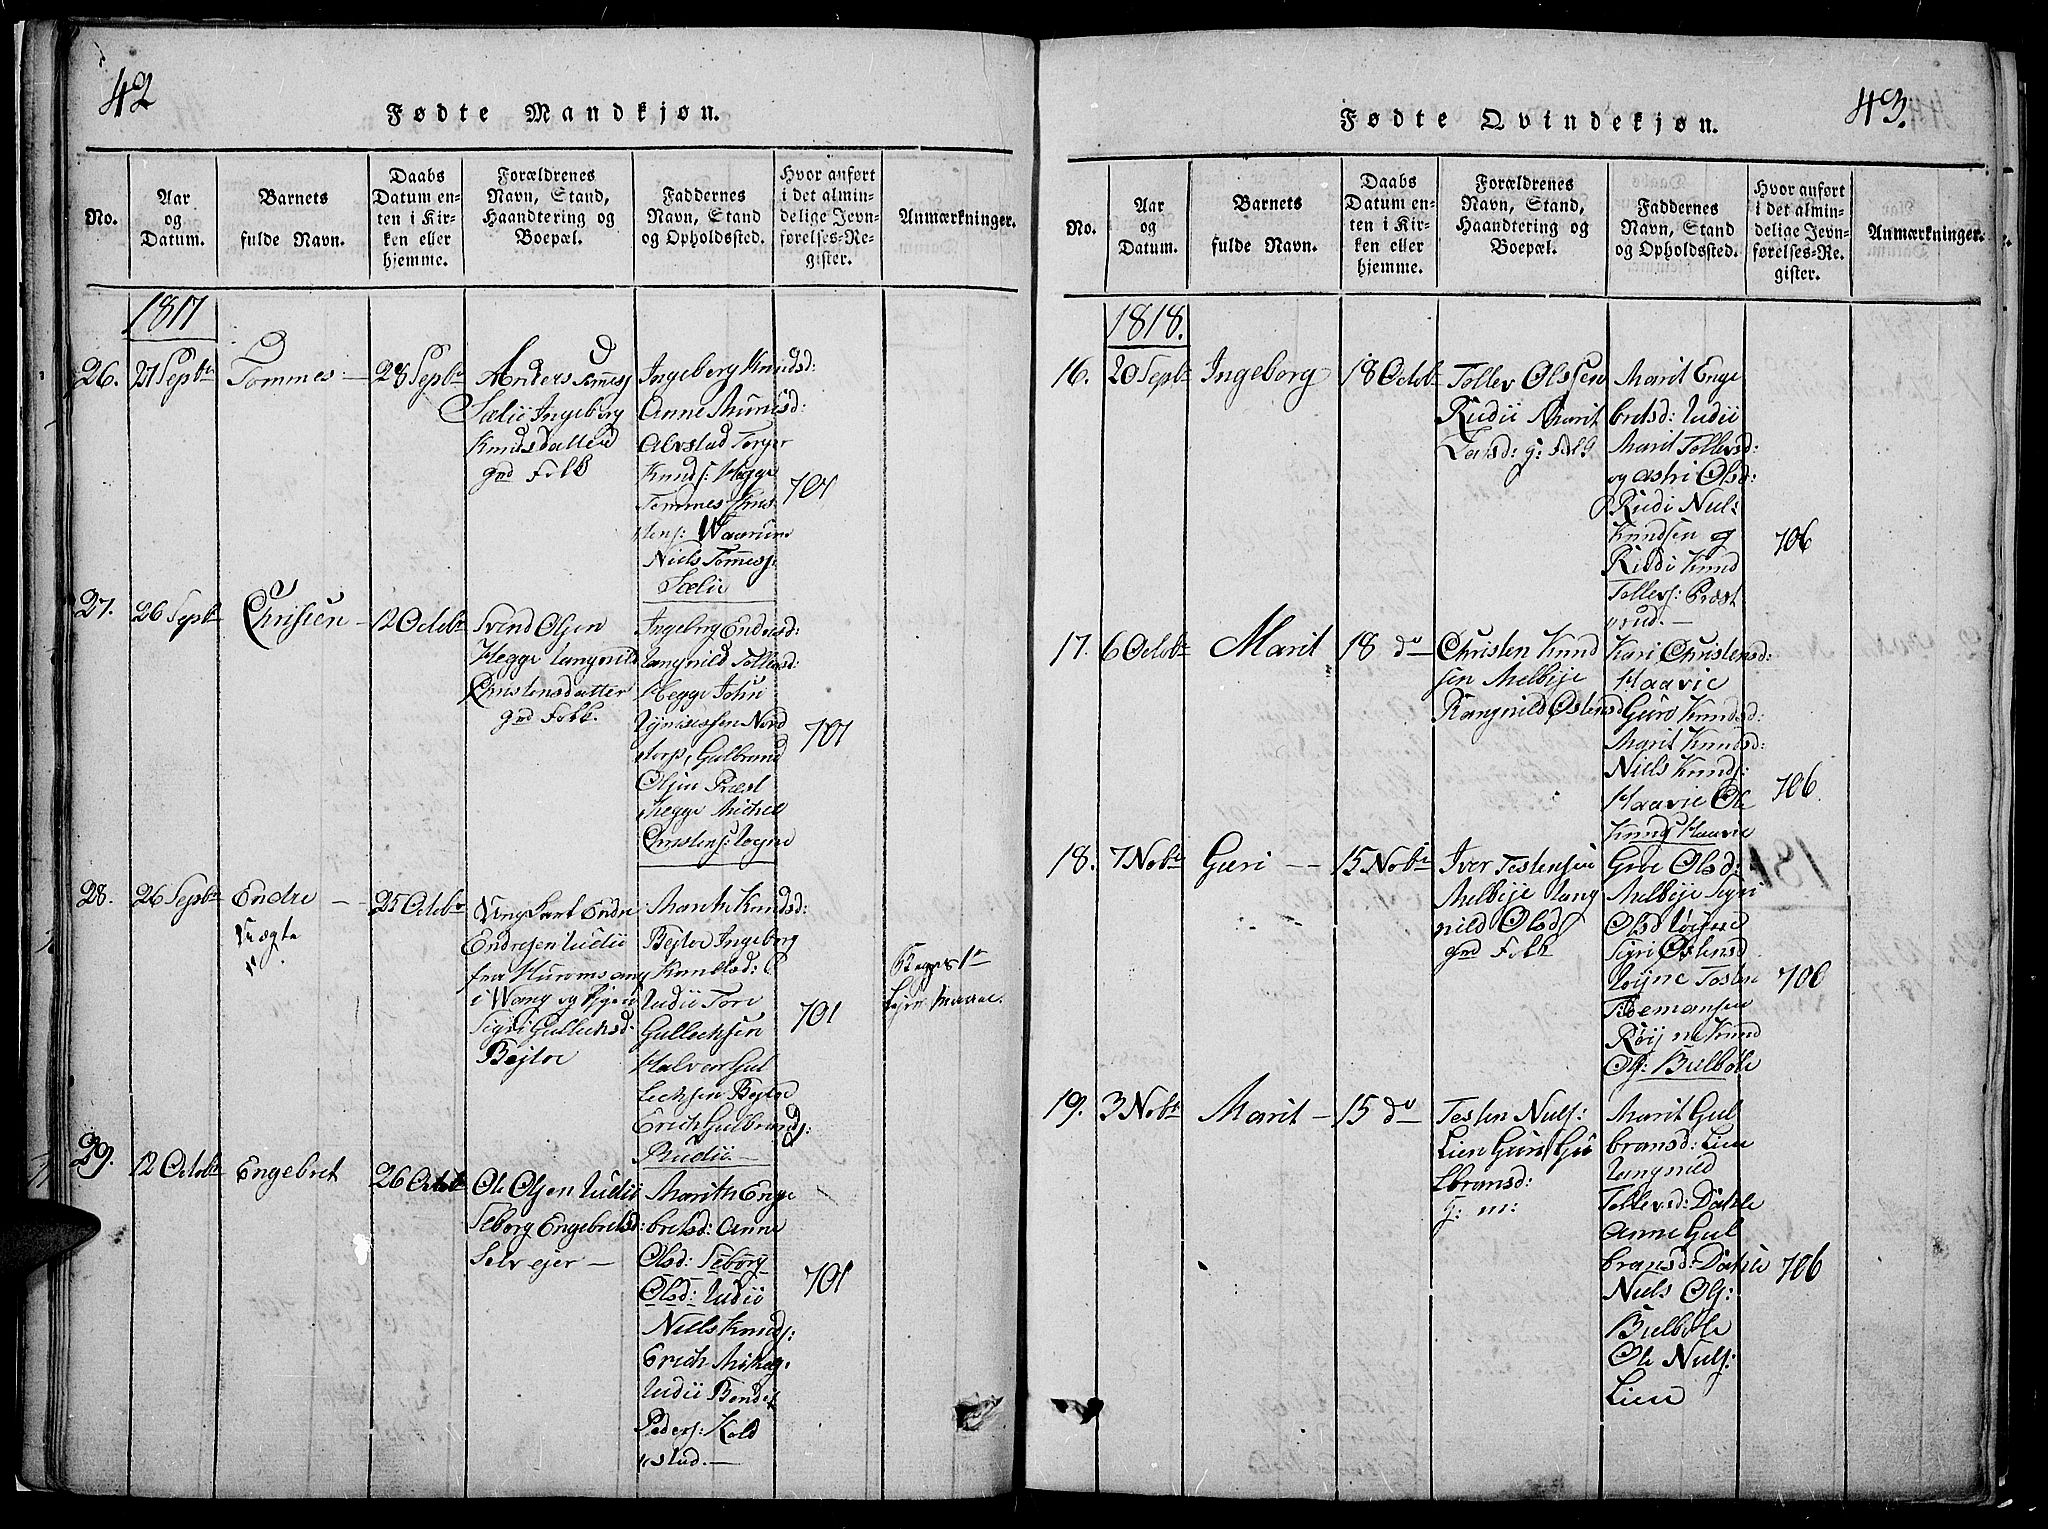 42
Fødte Mandkjøn.
No.
Aar
og
Datum.
Barnets
fulde Navn.
Daabs
Datum en-
ten i Kir-
ken eller
hjemme.
Forældrenes
Navn, Stand,
Haandtering og
Boepæl.
Faddernes
Navn, Stand
og Opholdssted.
Hvor anført
i det almin-
delige Jevn-
førelses-Re-
gister.
Anmærkninger.
1817
26.
21 Septbr
Tommes
28 Septbr
Anders Tommes
Sælii Ingeborg
Knudsdatter
gmd Folk
Ingeborg Knudsd:
Anne
Alvstad Torger
Knuds: Hegge
Tommes Chris
tens:
Niels Tommess:
Sælii
701
27.
26 Septbr
Christen
12 Octobr
Svend Olsen
Hegge Langnild
Christensdatter
gmd Folk.
Ingeborg Endresd:
Langnild Tollevsd:
Hegge John
Nord
torp, Gulbrand
Olsen Præst
Hegge Michel
Christens:
701
28.
26 Septbr
Endre
Uægte
25 Octobr
Ungkarl Endre
Endresen Udii
fra
i Wang og Pigen
Sigri Gullechsd:
Bejtoe
Marith Knudsd:
Bejtoe Ingeborg
Knudsd:
Udii Tore
Gullechsen
Halvor Gul
lechsen Bejtoe
Erich Gulbrands:
Rudii
701
Begges 1te
Lejermaal.
29.
12 Octobr
Engebret
26 Octobr
Ole Olsen Udii
Seborg Engebretsd:
Selvejer
Marith Enge
bretsd: Anne
Olsd: Seborg
Olsd: Udii
Niels Knuds:
Erich
Udii Bendit
Peders: Kold
stad.
701
43.
Fødte Qvindekjøn.
No.
Aar
og
Datum.
Barnets
fulde Navn.
Daabs
Datum en-
ten i Kir-
ken eller
hjemme.
Forældrenes
Navn, Stand,
Haandtering og
Boepæl.
Faddernes
Navn, Stand
og Opholdssted.
Hvor anført
i det almin-
delige Jevn-
førelses-Re-
gister.
Anmærkninger.
1818.
16.
20 Septbr
Ingeborg
18 Octobr
Tollev Olssen
Rudii Marit
Larsd: g: folk
Marit Enge
bretsd: Udii
Marit Tollevsd:
og Astri Olsd:
Rudi Niels
Knudsen og
Rudi Knud
Tollevs: Præst
rud.
706
17.
6 Octobr
Marit
18 do
Christen Knud
sen Melbye
Rangnild Østensd
Kari Christensd:
Haavie
Guro Knudsd:
Marit Knudsd:
Niels Knuds:
Haavie Ole
Knuds Haavie
706.
18.
7 Nobr
Guri
15 Nobr
Iver Testensen
Melbye Lang
nild Olsd
gmd Folk
Groe Olsd:
Melbye Sigri
Olsd
Sigri Østensd
Tosten
Knud
Ols: Bulbøle
706
19.
3 Nobr
Marit
15 do
Testen Niels:
Lien Guri Gu
lbransd:
g: m:
Marit Gul
bransd: Lien
Langnild
Tollevsd: Dahle
Anne Gul
bransd: Dahle
Niels Ols:
Bulbøle
Ole Niels:
Lien
706